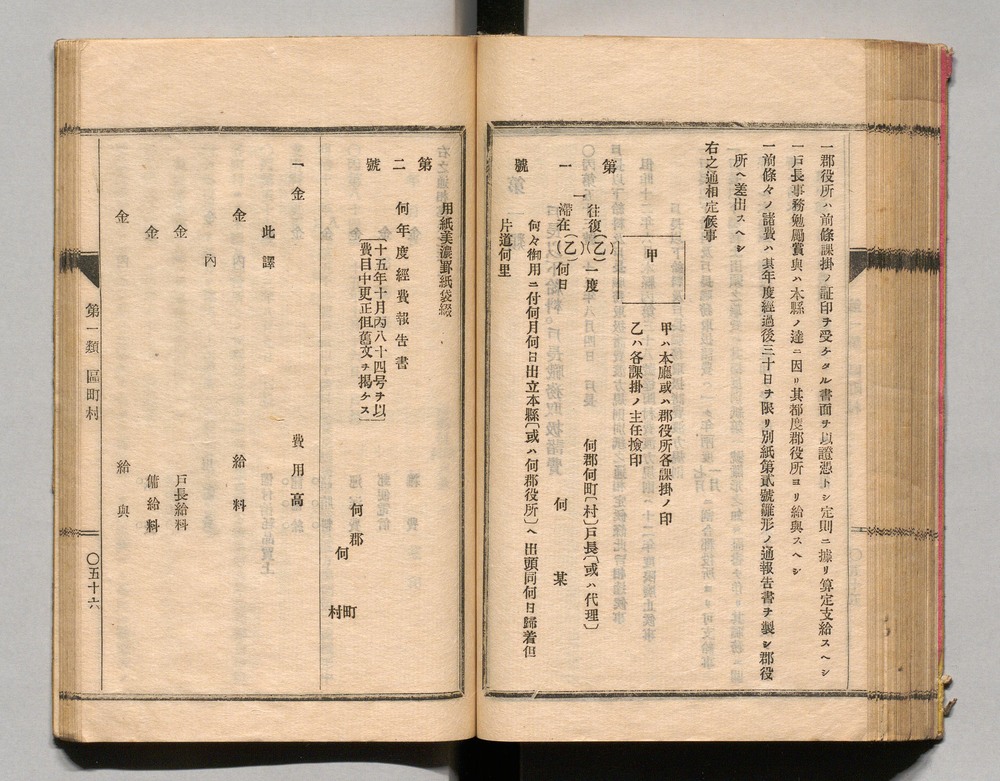 一郡役所ハ前條課掛ノ証印ヲ受ケタル書面ヲ以證憑トシ定則ニ據リ算定支給スヘシ
一戸長事務勉勵賞與ハ本縣ノ達ニ因リ其都度郡役所ヨリ給與スヘシ
一前條々ノ諸費ハ其年度經過後三十日ヲ限リ別紙第貳號雛形ノ通報告書ヲ製シ郡役
所ヘ差出スヘシ
右之通相定候事
甲
甲ハ本廳或ハ郡役所各課掛ノ印
乙ハ各課掛ノ主任撿印
第一號
一往復(乙)(乙)一度
滯在(乙)何日
何郡何町〔村〕戸長〔或ハ代理〕
何某
何々御用ニ付何月何日出立本縣〔或ハ何郡役所〕ヘ出頭同何日歸着但
片道何里
用紙美濃罫紙袋綴
第二號
何年度經費報告書
〔十五年十月丙八十四号ヲ以
費目中更正但舊文ヲ掲ケス〕
何郡
何
町村
一金
費用高
此譯
金
給料
內
金
戸長給料
金
傭給料
金
給與
第一類 區町村
〇五十六